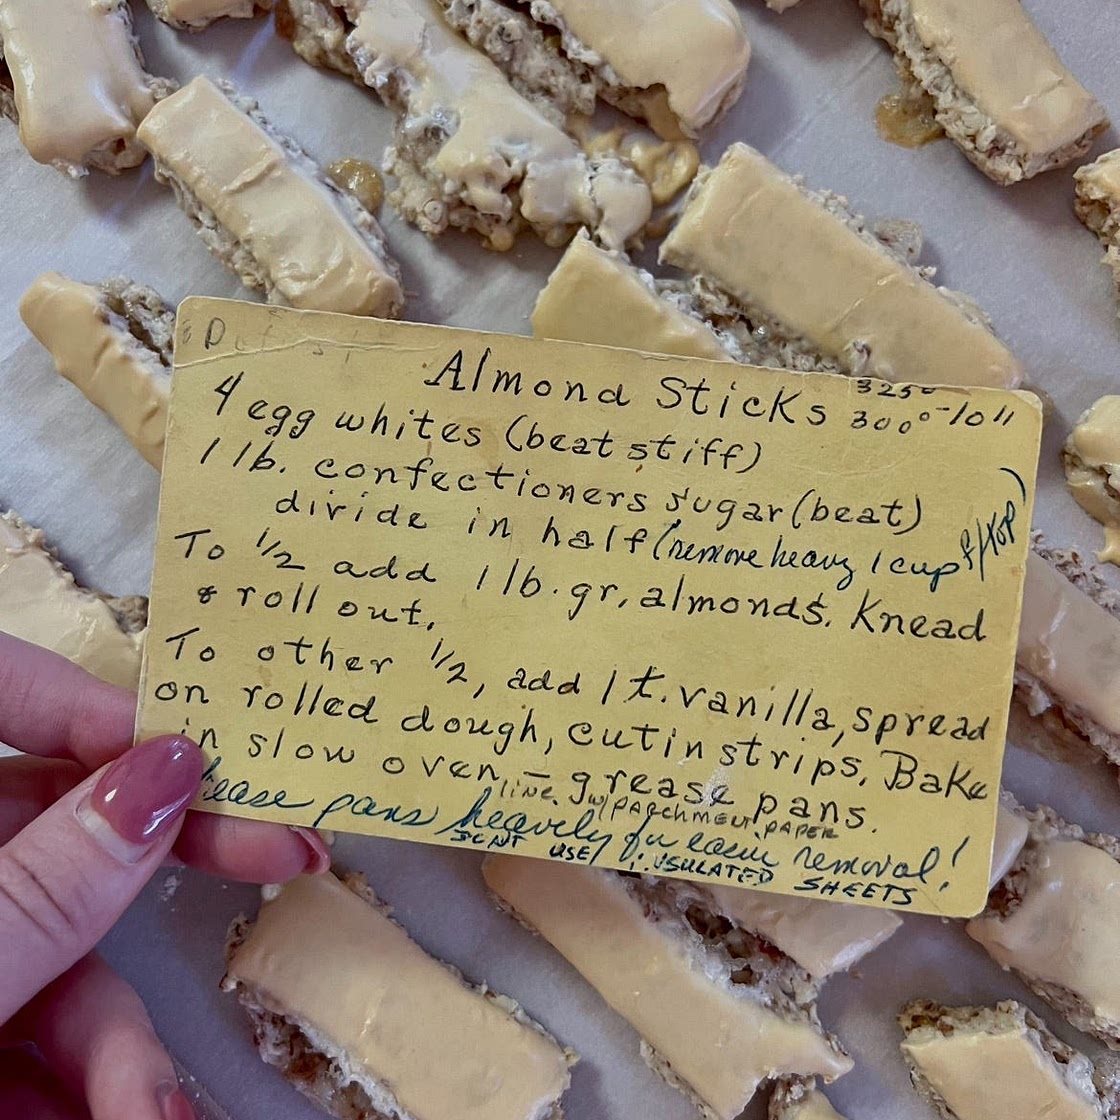 Almond Sticks 325°
300° - 10"
4 egg whites (beat stiff)
1 lb. confectioners sugar (beat)
divide in half (remove heavy 1 cup f/top)
To 1/2 add 1 lb. gr. almonds. Knead
& roll out.
To other 1/2, add 1 t. vanilla, spread
on rolled dough, cut in strips. Bake
in slow oven, - grease pans.
line w/ PARCHMENT PAPER
grease pans heavily for easier removal!
DONT USE INSULATED SHEETS